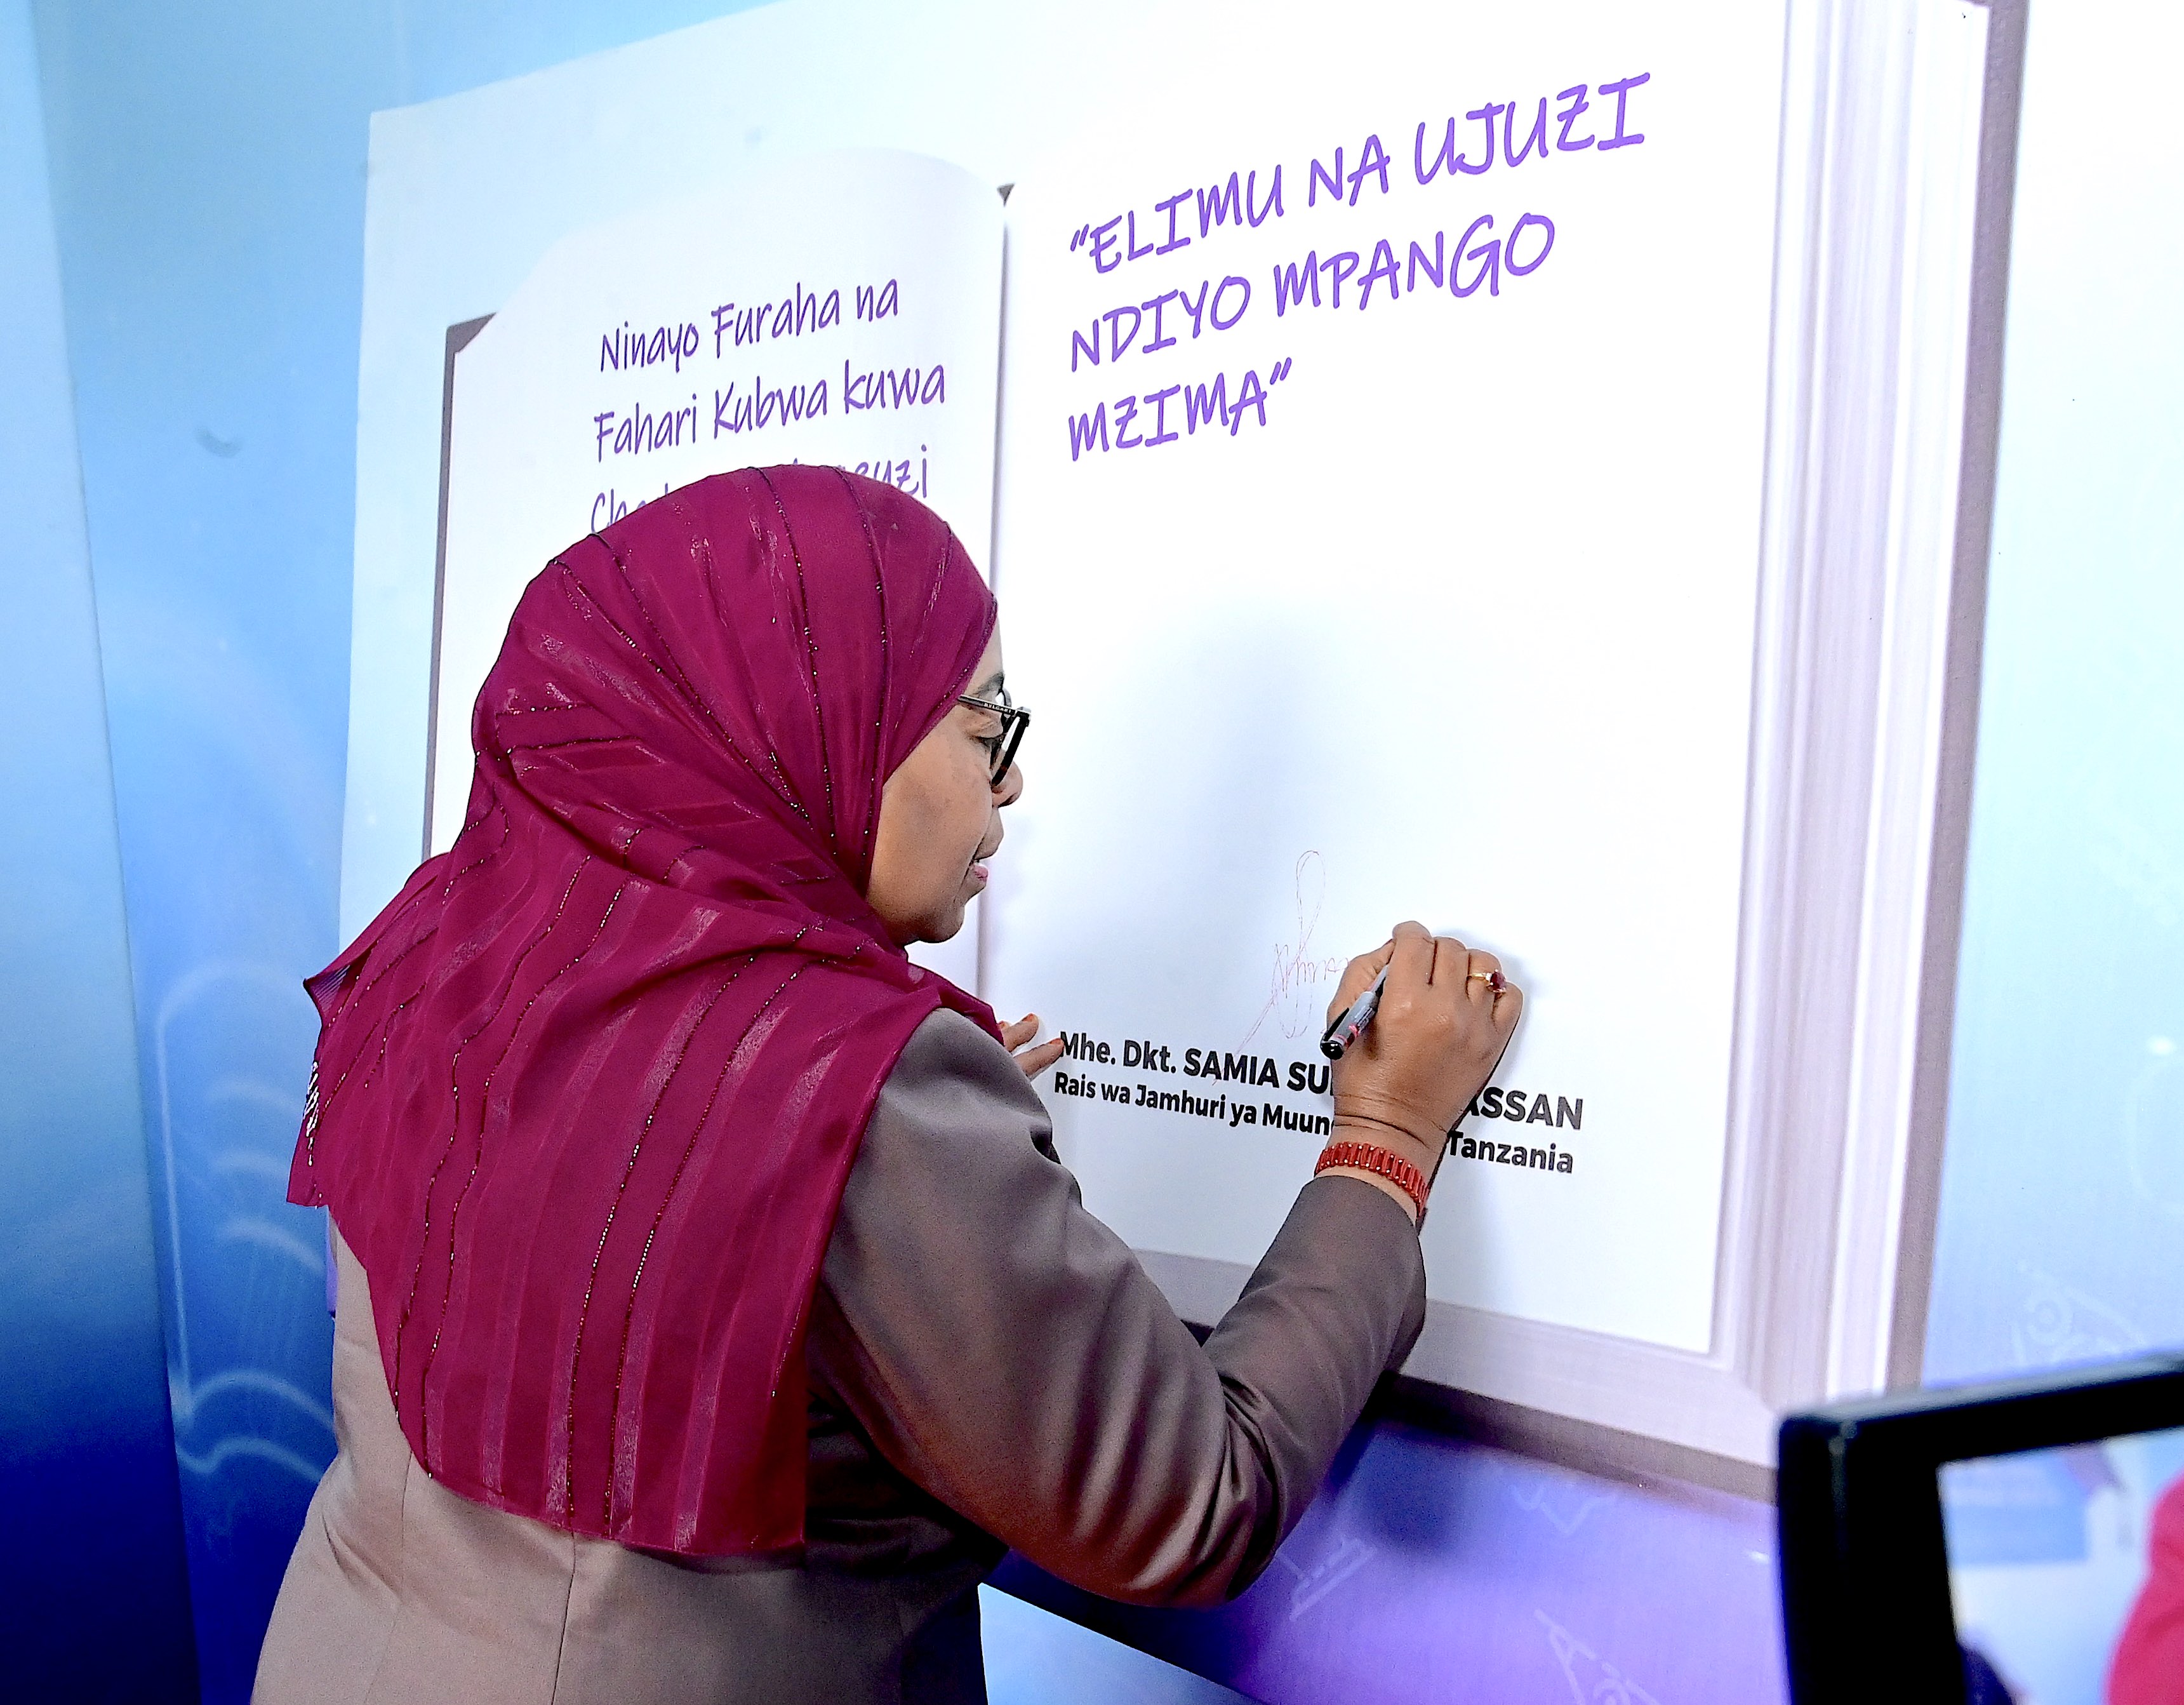 Ninayo Furaha na
Fahari Kubwa kuwa
"ELIMU NA UJUZI
NDIYO MPANGO
MZIMA"
Mhe. Dkt. SAMIA
Rais wa Jamhuri ya Tanzania